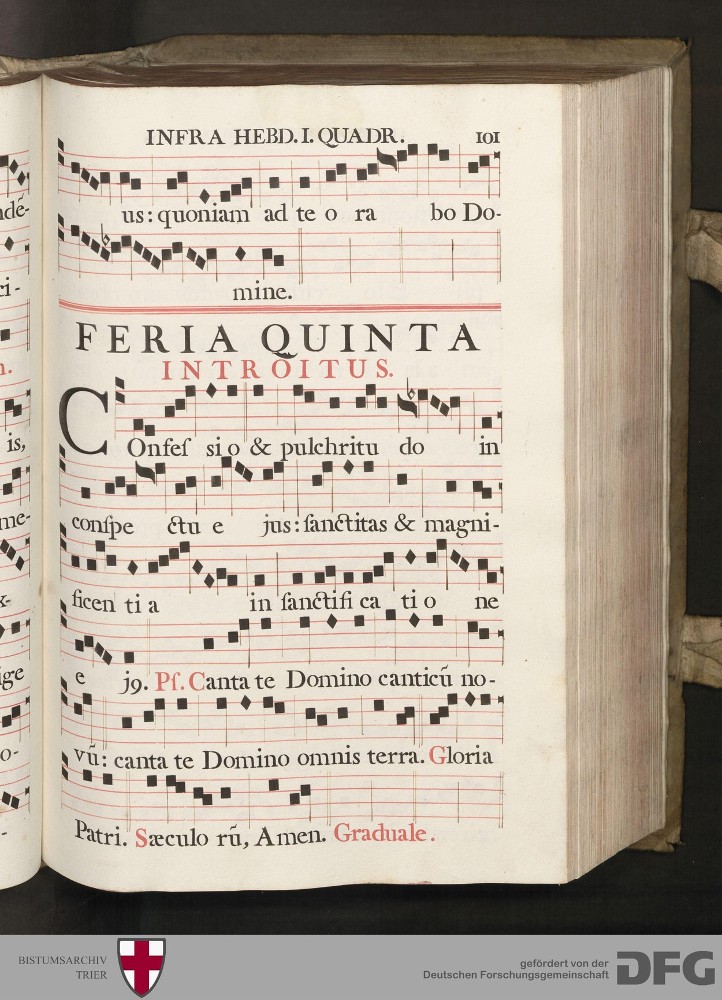 INFRA HEBD. I. QUADR. 101
us: quoniam ad te o ra bo Do-
mine.
FERIA QUINTA
INTROITUS.
COnfeſ si o & pulchritu do in
conſpe ctu e jus: ſanctitas & magni-
ficen ti a in ſanctifi ca ti o ne
e j9. Pſ. Canta te Domino canticũ no-
vũ: canta te Domino omnis terra. Gloria
Patri. Sæculo rũ, Amen. Graduale.
ndẽ-
ci-
n.
is,
me-
x-
ige
o-
-
BISTUMSARCHIV
TRIER
gefördert von der
Deutschen Forschungsgemeinschaft
DFG